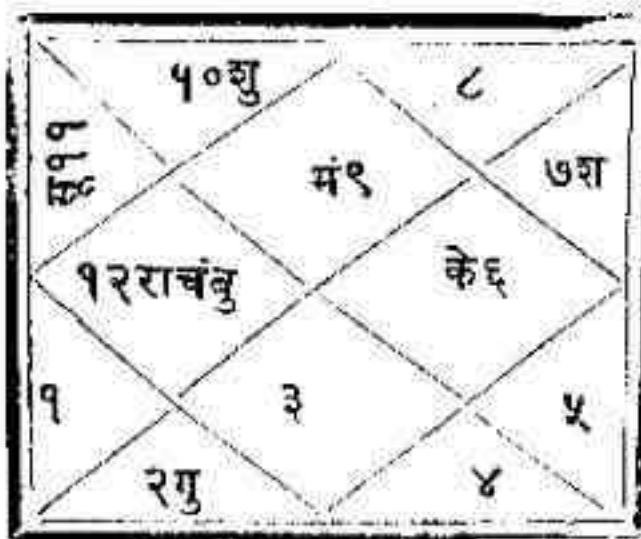 १०शु
८
सू११
मं९
७श
१२राचंबु
के६
१
३
५
२गु
४